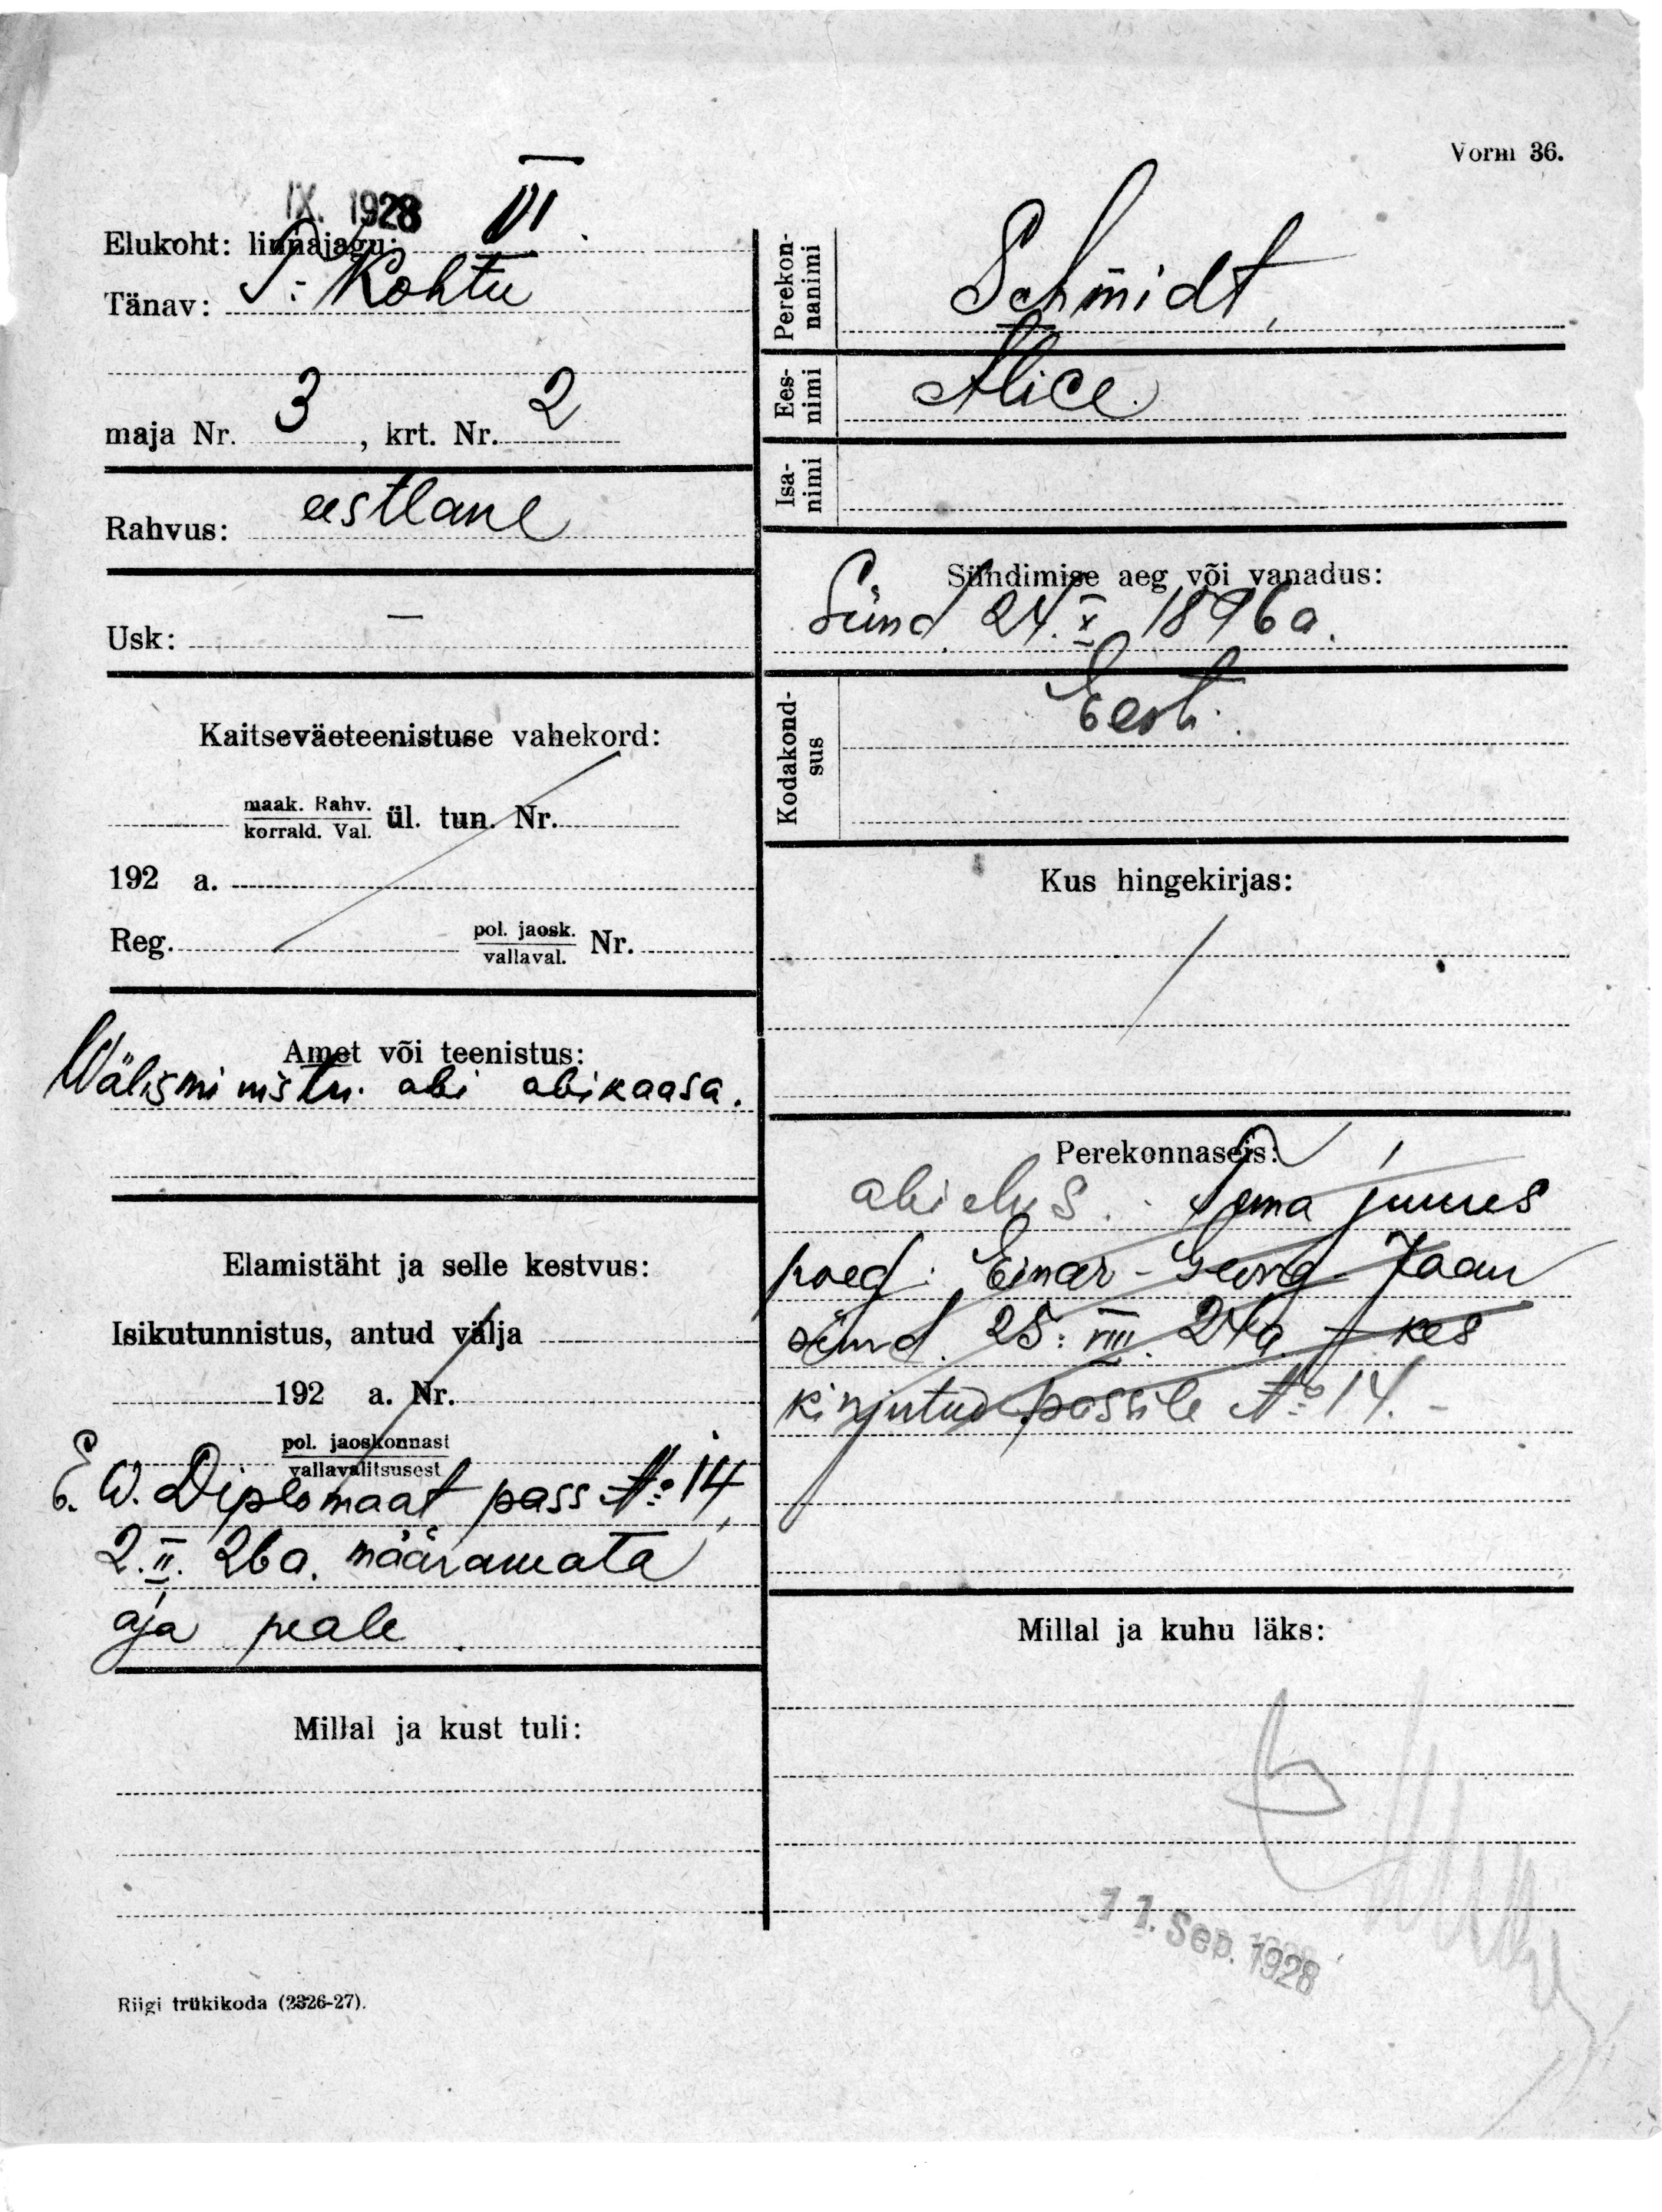 Vorm 36.
IX. 1928
Elukoht: linnajagu: VI
Tänav: P. Kohtu
maja Nr. 3, krt. Nr. 2
Rahvus: eestlane
Usk: —
Kaitseväeteenistuse vahekord:
maak. Rahv.
korrald. Val. ül. tun. Nr.
192 a.
Reg. pol. jaosk. Nr.
vallaval.
Amet või teenistus:
Wälisministri abi abikaasa.
Elamistäht ja selle kestvus:
Isikutunnistus, antud välja
192 a. Nr.
pol. jaoskonnast
vallavalitsusest
E. W. Diplomaat pass № 14,
2. II. 26 a. määramata
aja peale.
Millal ja kust tuli:
Riigi trükikoda (2326-27).
Perekonnanimi Schmidt,
Eesnimi Alice.
Isanimi
Sündimise aeg või vanadus:
Sünd. 24. X 1896 a.
Kodakondsus Eesti.
Kus hingekirjas:
Perekonnaseis:
abielus. Tema juures
poeg: Einar-Georg-Jaan
sünd. 25. VIII. 24 a. – kes
kirjutud passile № 14. –
Millal ja kuhu läks:
11. Sep. 1928